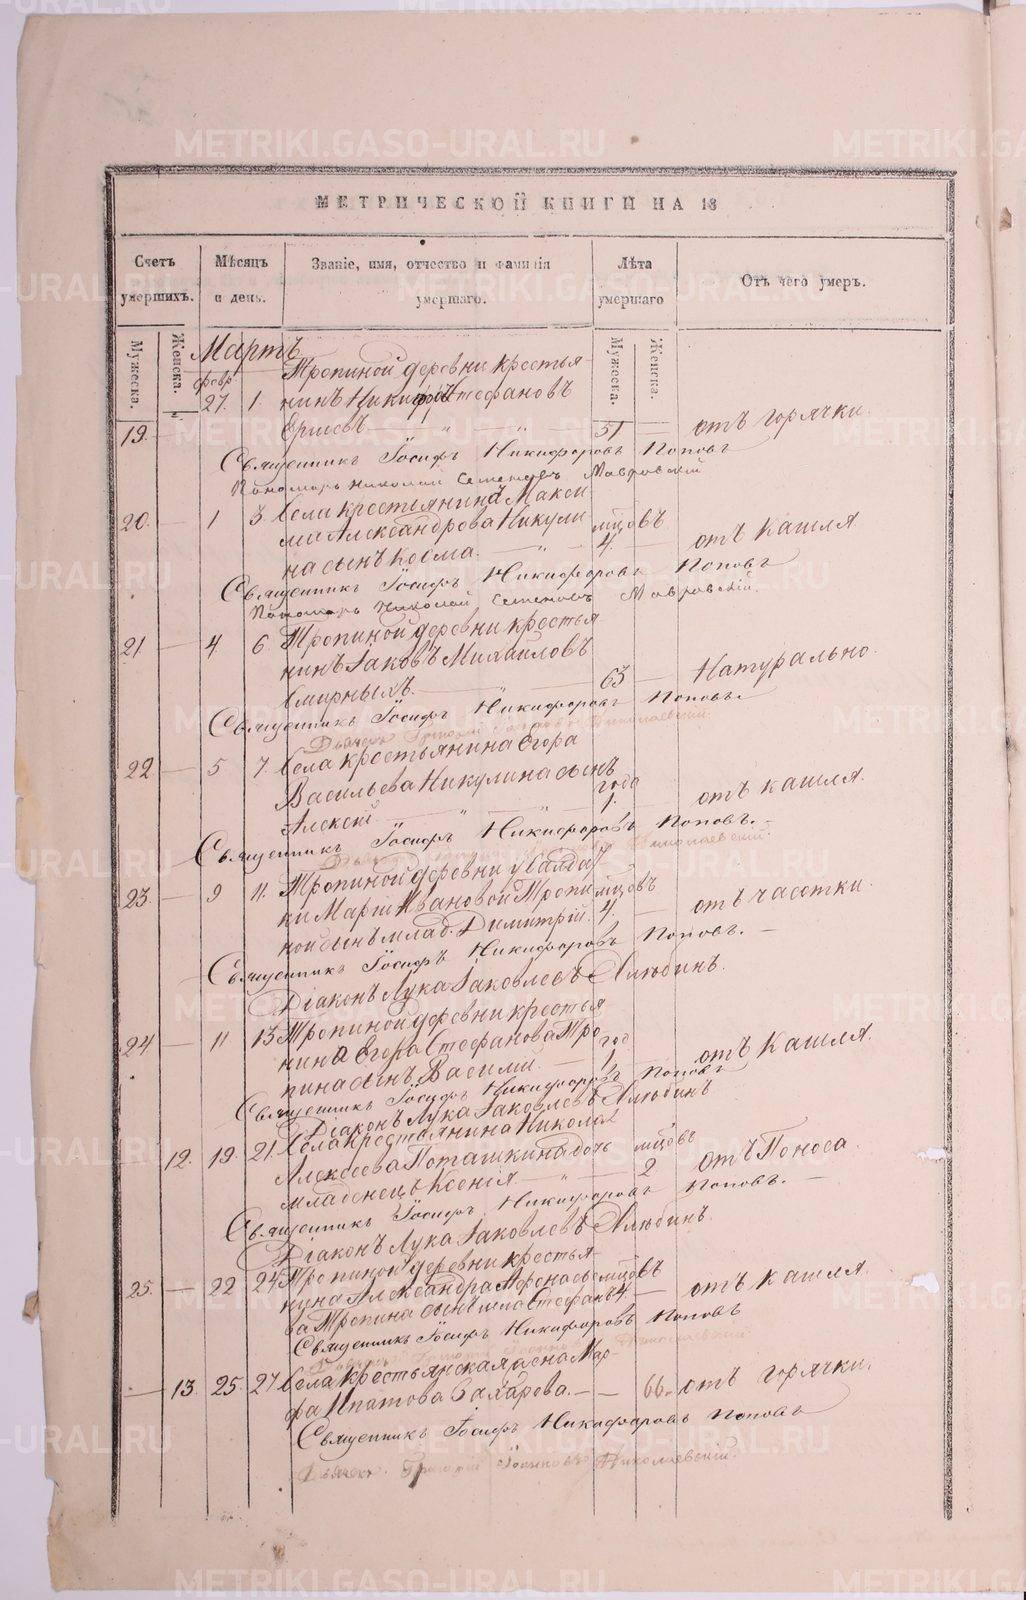 МЕТРИЧЕСКОЙ КНИГИ НА 18
Счетъ умершихъ.
Мѣсяцъ и день.
Званіе, имя, отчество и фамилія умершаго.
Лѣта умершаго
Отъ чего умеръ.
Мужеска. Женска.
Мужеска. Женска.
Мартъ
февр Тропиной деревни крестья-
27. 1. нинъ Никифоръ Стефановъ
19. — Ершевъ — " — " — 51 — отъ горячки.
Священникъ Іосифъ Никифоровъ Поповъ
Пономарь Николай Семеновъ Мавровскій
20. — 1 3 Села крестьянина Макси
ма Александрова Никули мцовъ
на сынъ Косма. — " — 4. — отъ кашля
Священникъ Іосифъ Никифоровъ Поповъ
Пономарь Николай Семеновъ Мавровскій.
21 — 4 6 Тропиной деревни крестья
нинъ Іаковъ Михаиловъ
Смирныхъ. — " — 63 — Натурально.
Священникъ Іосифъ Никифоровъ Поповъ.
Дьячекъ Григорій Іоанновъ Николаевскій.
22 — 5 7. Села крестьянина Егора
Васильева Никулина сынъ года
Алексѣй — " — " — 1. — отъ кашля.
Священникъ Іосифъ Никифоровъ Поповъ. —
Николаевскій.
23. — 9 11. Тропиной деревни у солдат
ки Маріи Ивановой Тропи мцовъ
ной сынъ млад. Димитрій. 4. — отъ чесотки.
Священникъ Іосифъ Никифоровъ Поповъ. —
Діаконъ Лука Іаковлевъ Хлюбинъ.
24 — 11 13 Тропиной деревни крестья
нина Егора Стефанова Тро год
пина сынъ Василій. — 1. — отъ кашля.
Священникъ Іосифъ Никифоровъ Поповъ
Діаконъ Лука Іаковлевъ Хлюбинъ
— 12. 19. 21. Села крестьянина Николая
Алексеева Поташкина дочь мцовъ
младенецъ Ксенія — " — 2 отъ Поноса.
Священникъ Іосифъ Никифоровъ Поповъ. —
Діаконъ Лука Іаковлевъ Хлюбинъ.
25. — 22 24 Тропиной деревни крестья-
нина Александра Афонасье мцовъ
ва Тропина сынъ Стефанъ 4. — отъ кашля.
Священникъ Іосифъ Никифоровъ Поповъ
Николаевскій
— 13. 25. 27 Села крестьянская жена Мар-
фа Ипатова Сахарова. — — 66. отъ горячки.
Священникъ Іосифъ Никифоровъ Поповъ
Дьячекъ Григорій Іоанновъ Николаевскій.
METRIKI.GASO-URAL.RU